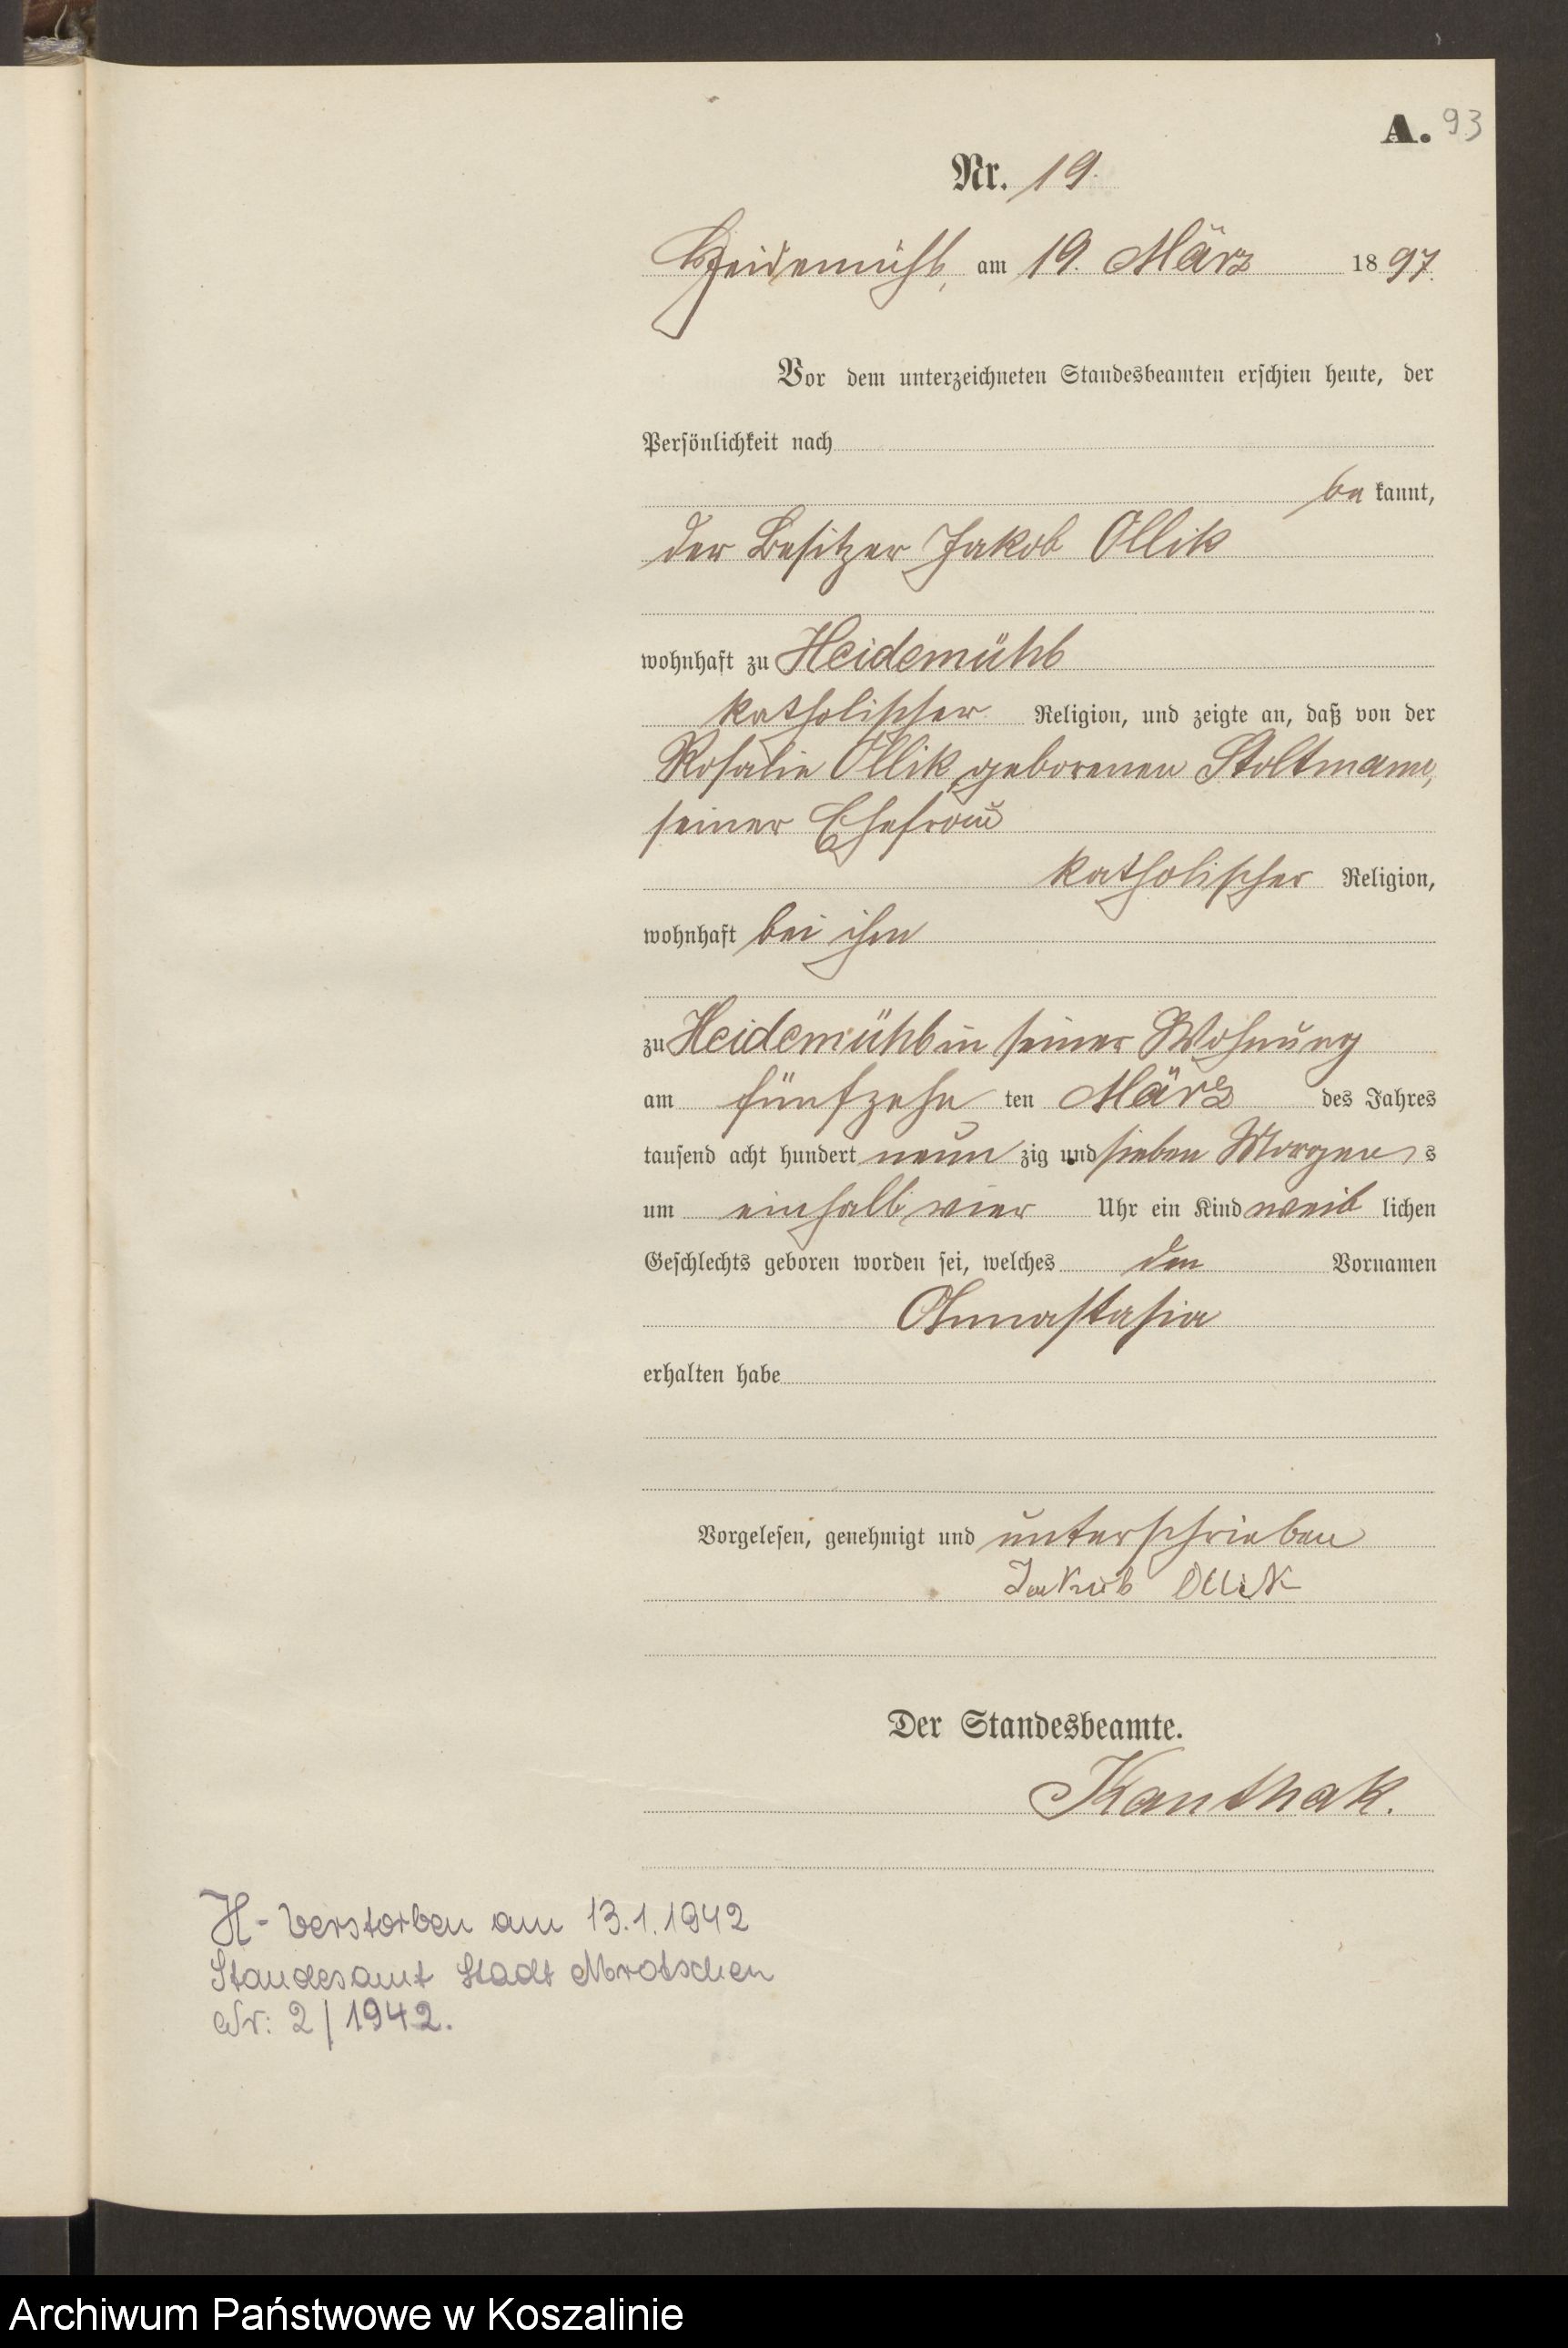 A. 93
Nr. 19.
Heidemühl, am 19. März 1897.
Vor dem unterzeichneten Standesbeamten erschien heute, der
Persönlichkeit nach
be kannt,
der Besitzer Jakob Ollik
wohnhaft zu Heidemühl
katholischer Religion, und zeigte an, daß von der
Rosalie Ollik geborenen Stoltmann,
seiner Ehefrau
katholischer Religion,
wohnhaft bei ihm
zu Heidemühl in seiner Wohnung
am fünfzehn ten März des Jahres
tausend acht hundert neun zig und sieben Morgens s
um einhalb vier Uhr ein Kind weib lichen
Geschlechts geboren worden sei, welches den Vornamen
Annastasia
erhalten habe
Vorgelesen, genehmigt und unterschrieben
Jakub Ollik
Der Standesbeamte.
Kanthak.
H - Verstorben am 13.1.1942
Standesamt Stadt Mrotschen
Nr: 2/1942.
Archiwum Państwowe w Koszalinie